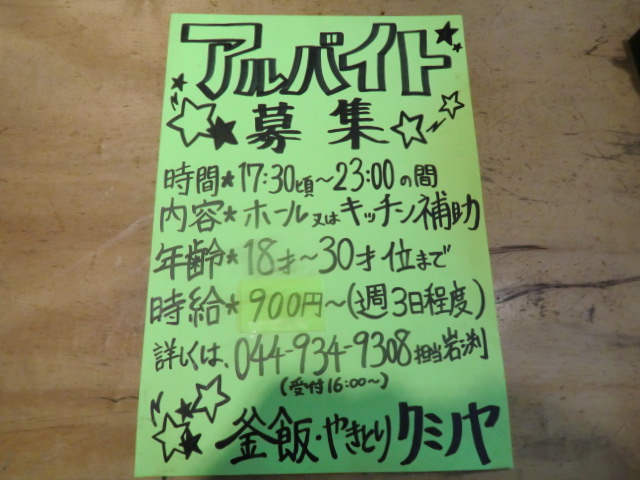 アルバイト
募集
時間★17:30頃～23:00の間
内容★ホール又はキッチン補助
年齢★18才～30才位まで
時給★900円～(週3日程度)
詳しくは、044-934-9308担当岩渕
(受付16:00～)
釜飯・やきとりクミヤ